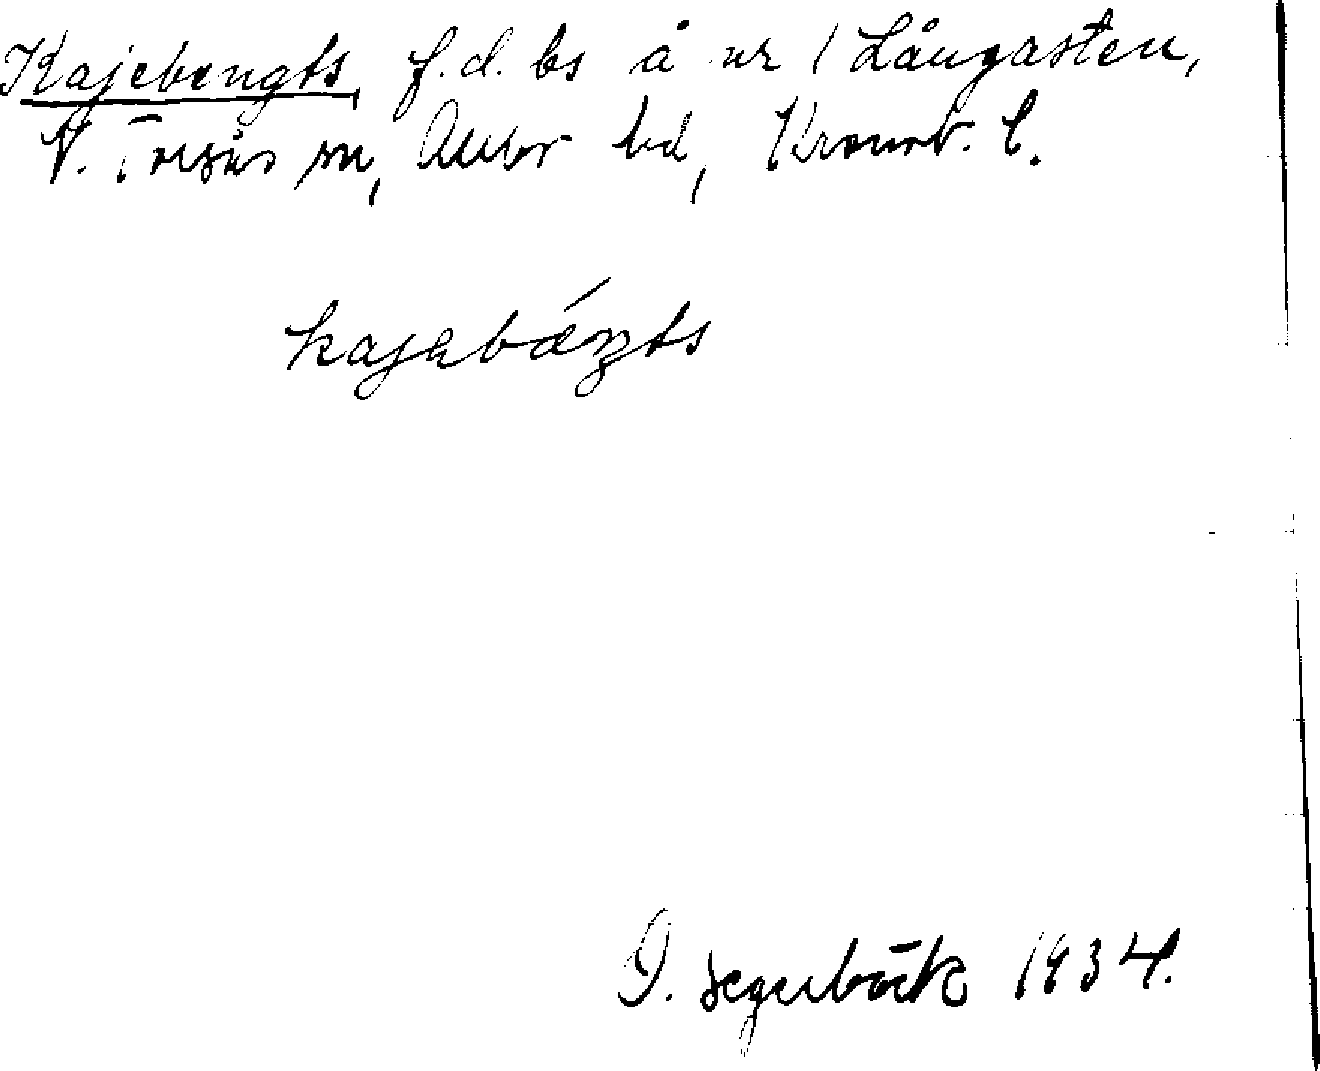 Kajebengts, f.d. bs å nr 1 Långasten,
V. Torsås sn, Allbo hd, Kronob. l.
kajabæŋts
J. Segerbäck 1934.